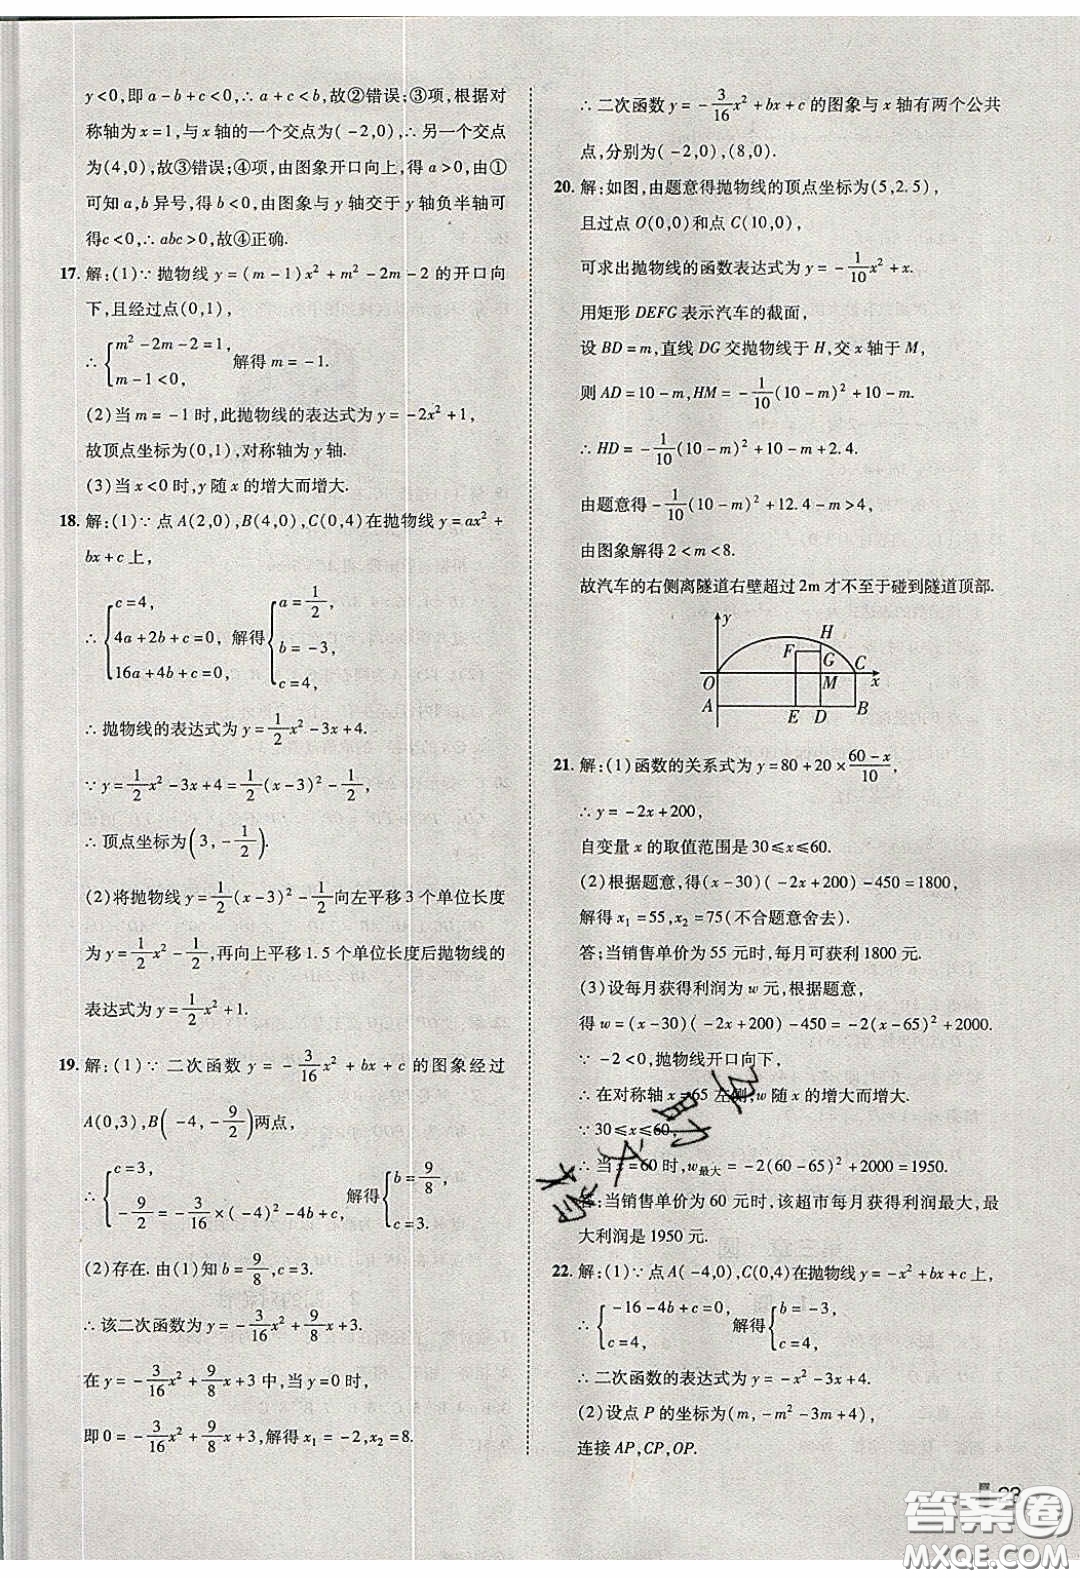 y<0,即a-b+c<0,∴a+c<b,故②错误;③项,根据对
称轴为x=1,与x轴的一个交点为(-2,0),∴另一个交点
为(4,0),故③错误;④项,由图象开口向上,得a>0,由①
可知a,b异号,得b<0,由图象与y轴交于y轴负半轴可
得c<0,∴abc>0,故④正确.
17. 解:(1)∵抛物线y=(m-1)x²+m²-2m-2的开口向
下,且经过点(0,1),
∴{m²-2m-2=1, m-1<0, 解得m=-1.
(2)当m=-1时,此抛物线的表达式为y=-2x²+1,
故顶点坐标为(0,1),对称轴为y轴.
(3)当x<0时,y随x的增大而增大.
18. 解:(1)∵点A(2,0),B(4,0),C(0,4)在抛物线y=ax²+
bx+c上,
∴{c=4, 4a+2b+c=0, 16a+4b+c=0, 解得{a=1/2, b=-3, c=4,
∴抛物线的表达式为y=1/2x²-3x+4.
∵y=1/2x²-3x+4=1/2(x-3)²-1/2,
∴顶点坐标为(3,-1/2).
(2)将抛物线y=1/2(x-3)²-1/2向左平移3个单位长度
为y=1/2x²-1/2,再向上平移1.5个单位长度后抛物线的
表达式为y=1/2x²+1.
19. 解:(1)∵二次函数y=-3/16x²+bx+c的图象经过
A(0,3),B(-4,-9/2)两点,
∴{c=3, -9/2=-3/16×(-4)²-4b+c, 解得{b=9/8, c=3.
(2)存在.由(1)知b=9/8,c=3.
∴该二次函数为y=-3/16x²+9/8x+3.
在y=-3/16x²+9/8x+3中,当y=0时,
即0=-3/16x²+9/8x+3,解得x₁=-2,x₂=8.
∴二次函数y=-3/16x²+bx+c的图象与x轴有两个公共
点,分别为(-2,0),(8,0).
20. 解:如图,由题意得抛物线的顶点坐标为(5,2.5),
且过点O(0,0)和点C(10,0),
可求出抛物线的函数表达式为y=-1/10x²+x.
用矩形DEFG表示汽车的截面,
设BD=m,直线DG交抛物线于H,交x轴于M,
则AD=10-m,HM=-1/10(10-m)²+10-m.
∴HD=-1/10(10-m)²+10-m+2.4.
由题意得-1/10(10-m)²+12.4-m>4,
由图象解得2<m<8.
故汽车的右侧离隧道右壁超过2m才不至于碰到隧道顶部.
y
H
F
G
C
O
M
x
A
E
D
B
21. 解:(1)函数的关系式为y=80+20×(60-x)/10,
∴y=-2x+200,
自变量x的取值范围是30≤x≤60.
(2)根据题意,得(x-30)(-2x+200)-450=1800,
解得x₁=55,x₂=75(不合题意舍去).
答:当销售单价为55元时,每月可获利1800元.
(3)设每月获得利润为w元,根据题意,
得w=(x-30)(-2x+200)-450=-2(x-65)²+2000.
∵-2<0,抛物线开口向下,
∴在对称轴x=65左侧,w随x的增大而增大.
∵30≤x≤60,
∴当x=60时,w最大=-2(60-65)²+2000=1950.
答:当销售单价为60元时,该超市每月获得利润最大,最
大利润是1950元.
22. 解:(1)∵点A(-4,0),C(0,4)在抛物线y=-x²+bx+c上,
∴{-16-4b+c=0, c=4, 解得{b=-3, c=4,
∴二次函数的表达式为y=-x²-3x+4.
(2)设点P的坐标为(m,-m²-3m+4),
连接AP,CP,OP.
答案圈
MXQE.COM